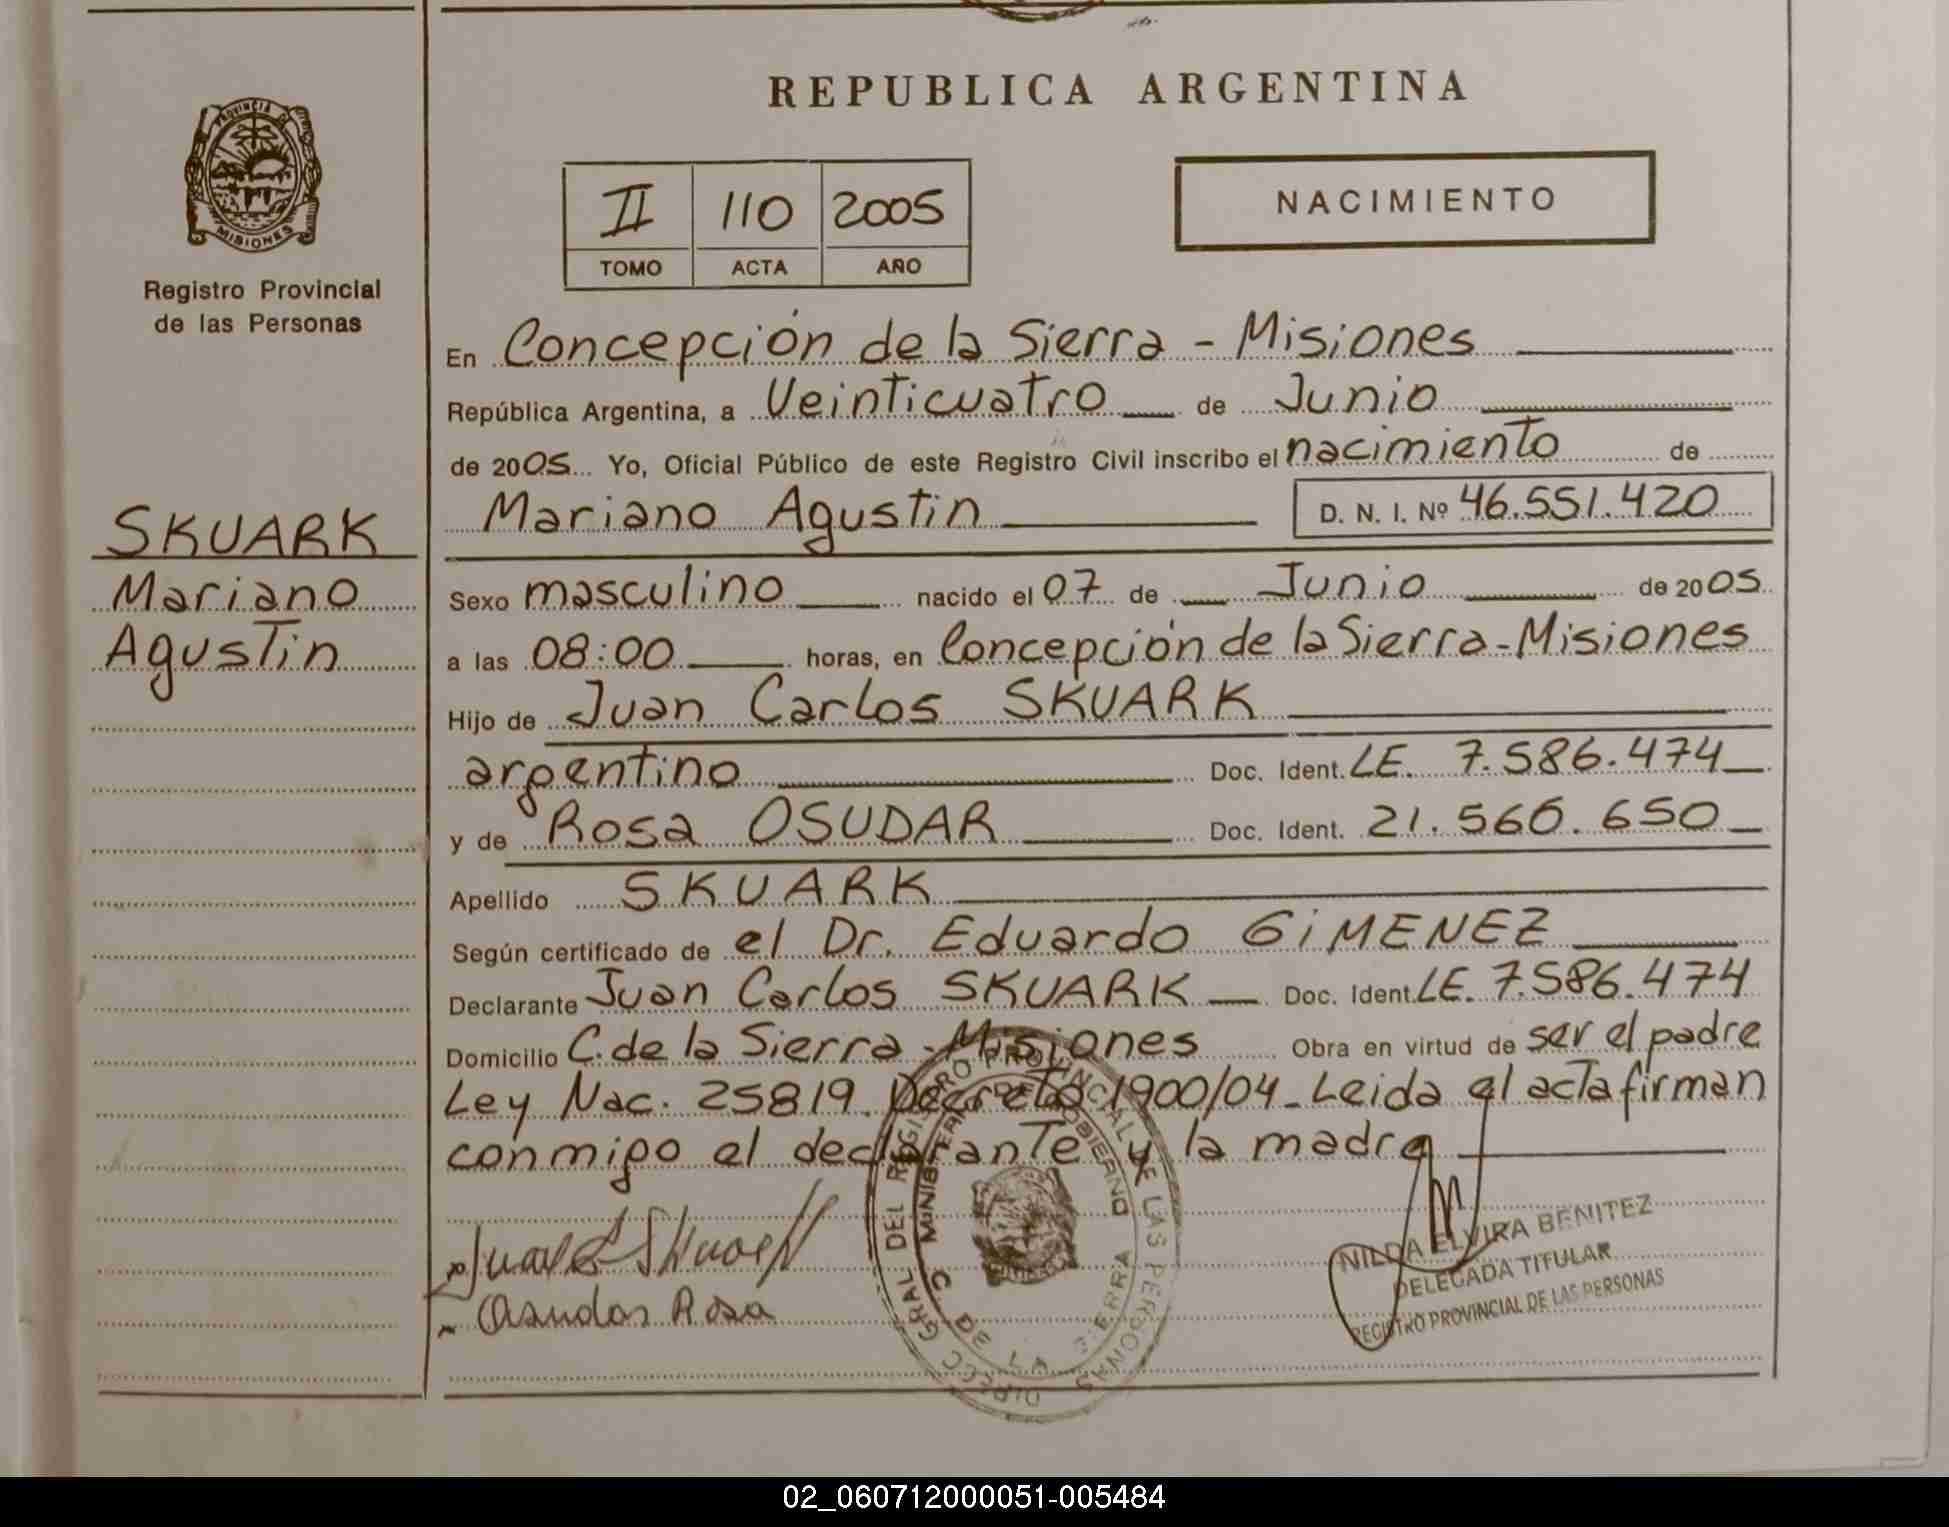 REPUBLICA ARGENTINA
PROVINCIA DE
MISIONES
Registro Provincial
de las Personas
II 110 2005
TOMO ACTA AÑO
NACIMIENTO
SKUARK
Mariano
Agustin
En Concepción de la Sierra - Misiones
República Argentina, a Veinticuatro de Junio
de 2005 Yo, Oficial Público de este Registro Civil inscribo el nacimiento de
Mariano Agustin D. N. I. Nº 46.551.420
Sexo masculino nacido el 07 de Junio de 2005
a las 08:00 horas, en Concepción de la Sierra-Misiones
Hijo de Juan Carlos SKUARK
argentino Doc. Ident. LE. 7.586.474
y de Rosa OSUDAR Doc. Ident. 21.560.650
Apellido SKUARK
Según certificado de el Dr. Eduardo GiMENEZ
Declarante Juan Carlos SKUARK Doc. Ident. LE. 7.586.474
Domicilio C. de la Sierra - Misiones Obra en virtud de ser el padre
Ley Nac. 25819. Decreto 1900/04 - Leida el acta firman
conmigo el declarante y la madre
Osudar Rosa
DIRECC GRAL DEL REGISTRO PROVINCIAL DE LAS PERSONAS
MINISTERIO DE GOBIERNO
C DE LA SIERRA
NILDA ELVIRA BENITEZ
DELEGADA TITULAR
REGISTRO PROVINCIAL DE LAS PERSONAS
02_060712000051-005484